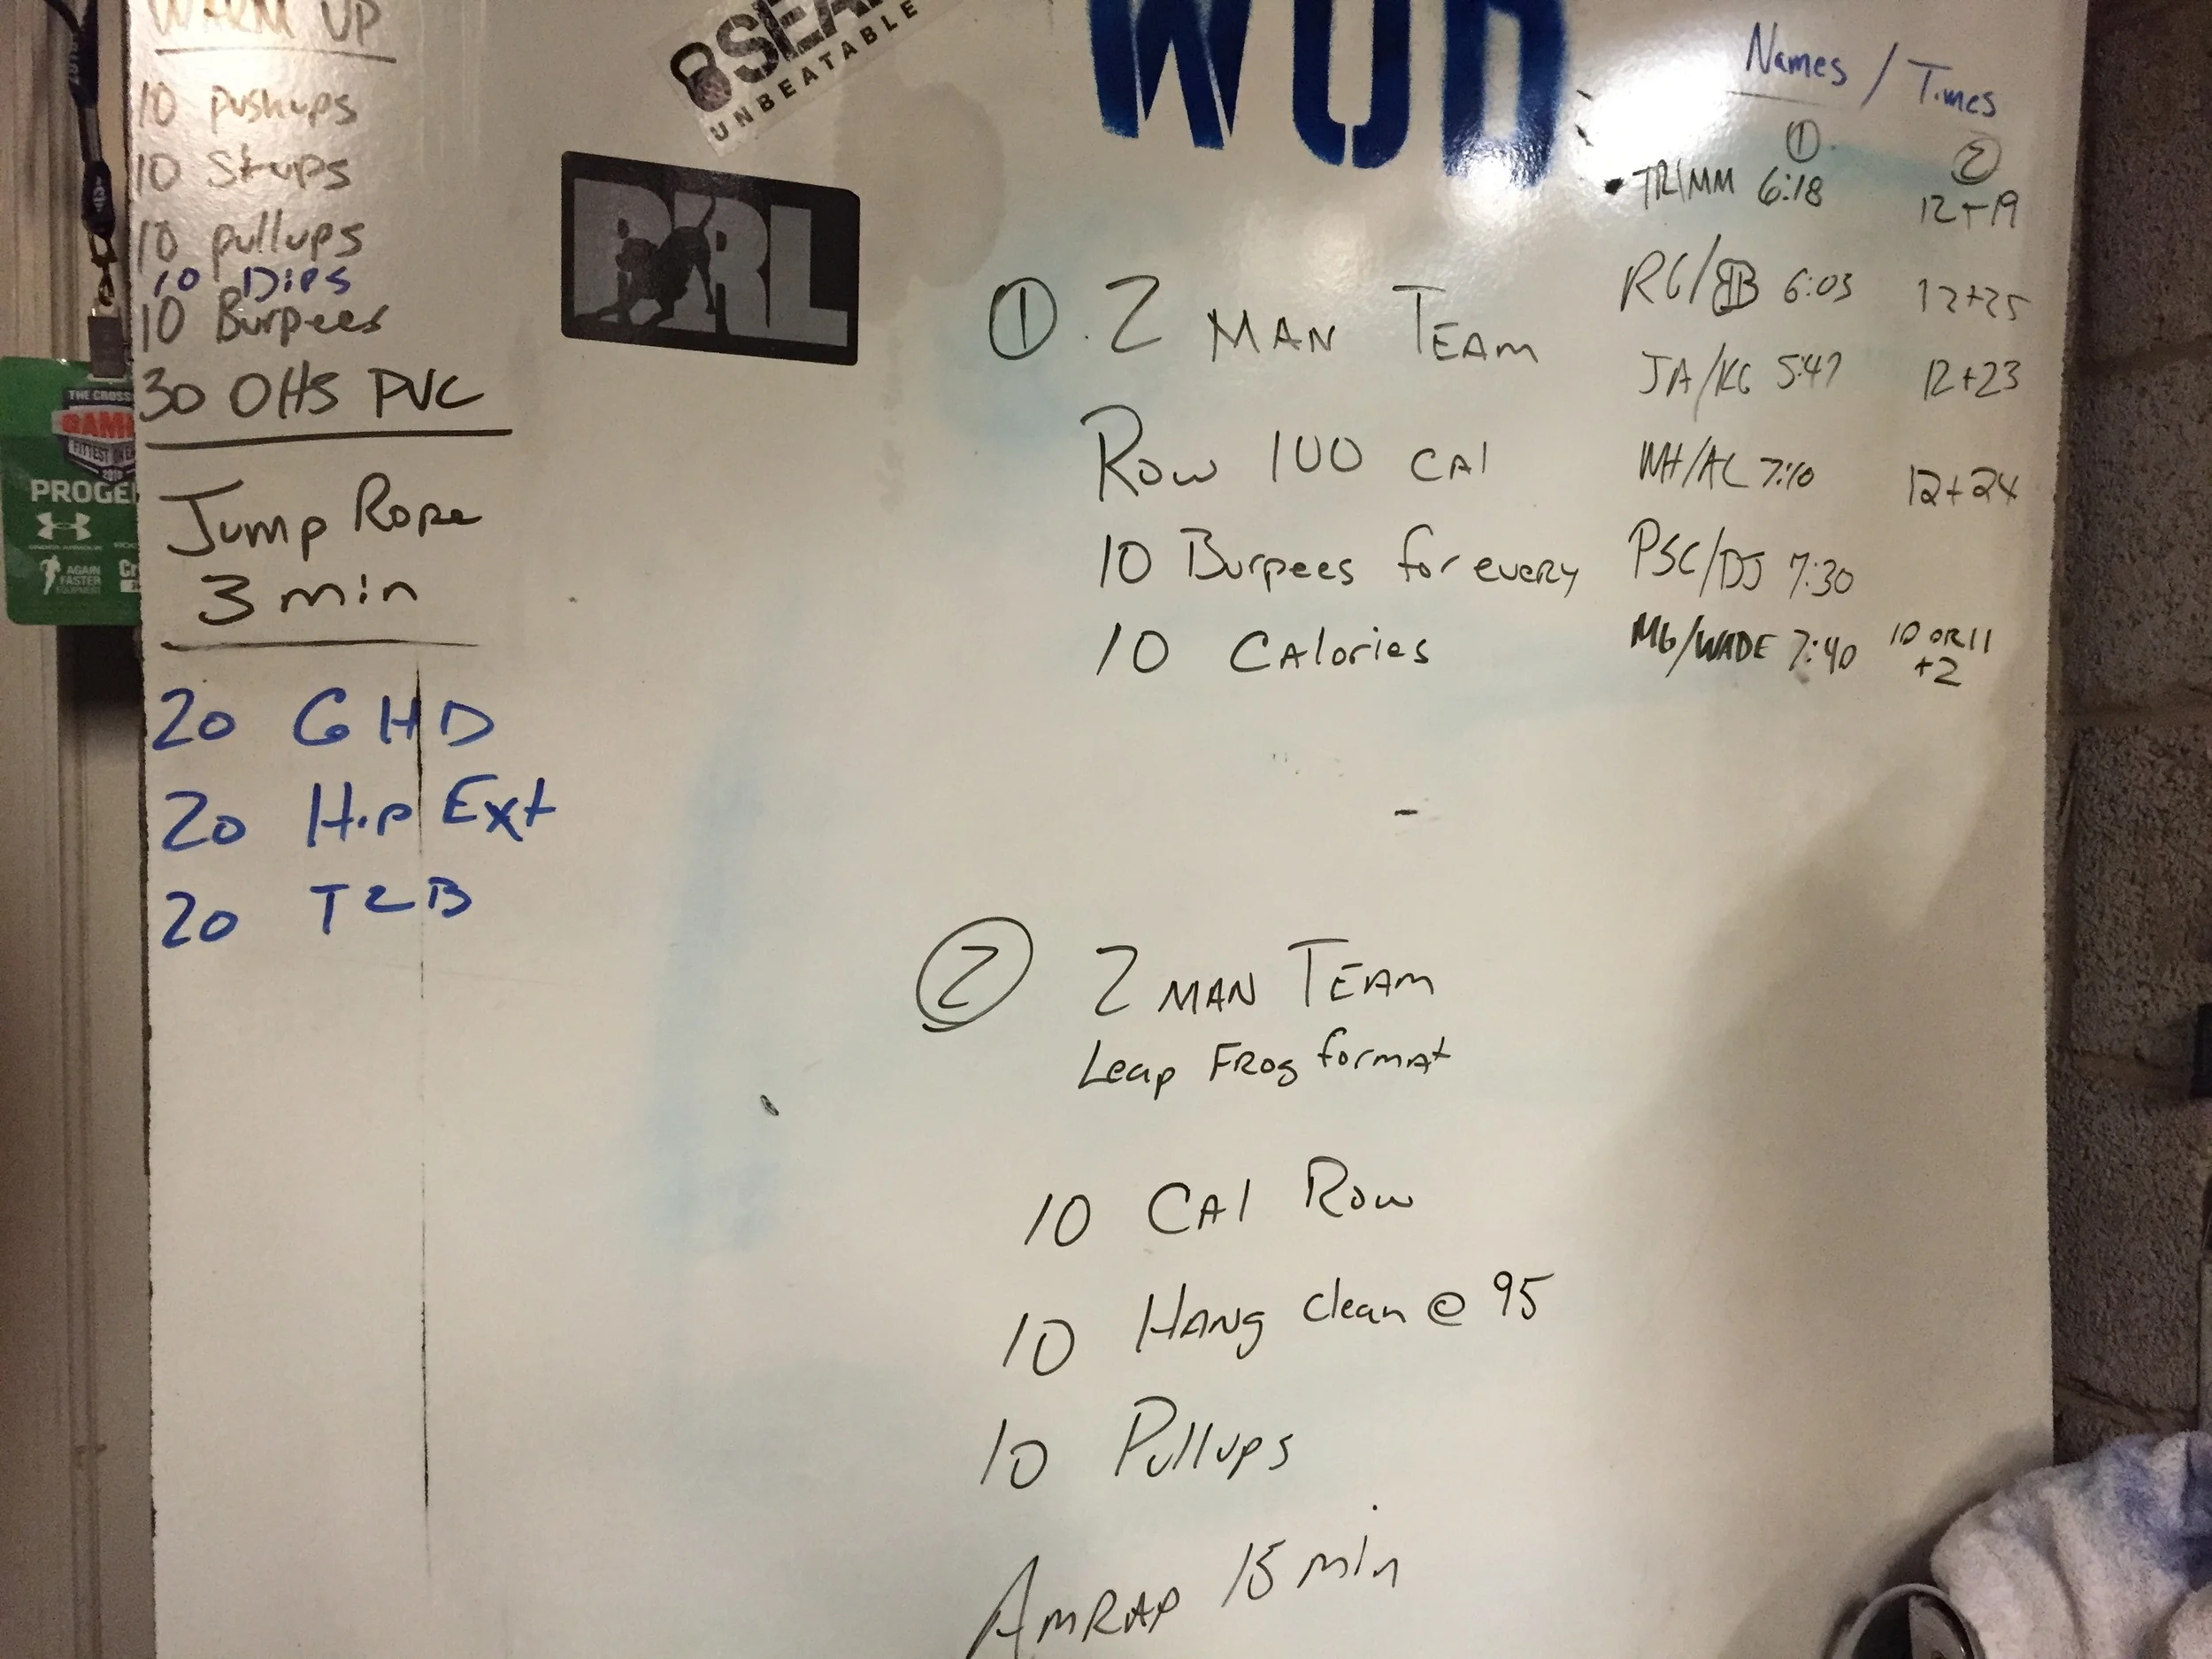 WARM UP
10 pushups
10 Situps
10 pullups
10 Dips
10 Burpees
30 OHS PVC
Jump Rope
3 min
20 GHD
20 Hip Ext
20 T2B
UNBEATABLE
PRL
WOD
① 2 MAN TEAM
Row 100 CAl
10 Burpees for every
10 CAlories
② 2 MAN TEAM
Leap FROg formAt
10 CAl Row
10 HANg clean @ 95
10 Pullups
AMRAP 15 min
Names / Times
① ②
TR/MM 6:18 12+19
RG/BB 6:03 12+25
JA/KG 5:47 12+23
WH/AC 7:10 12+24
PSC/DJ 7:30
MG/WADE 7:40 10 OR 11
+2
THE CROSS
GAM
FITTEST ON EA
PROGE
UNDER ARMOUR
AGAIN
FASTER
EQUIPMENT
Cr